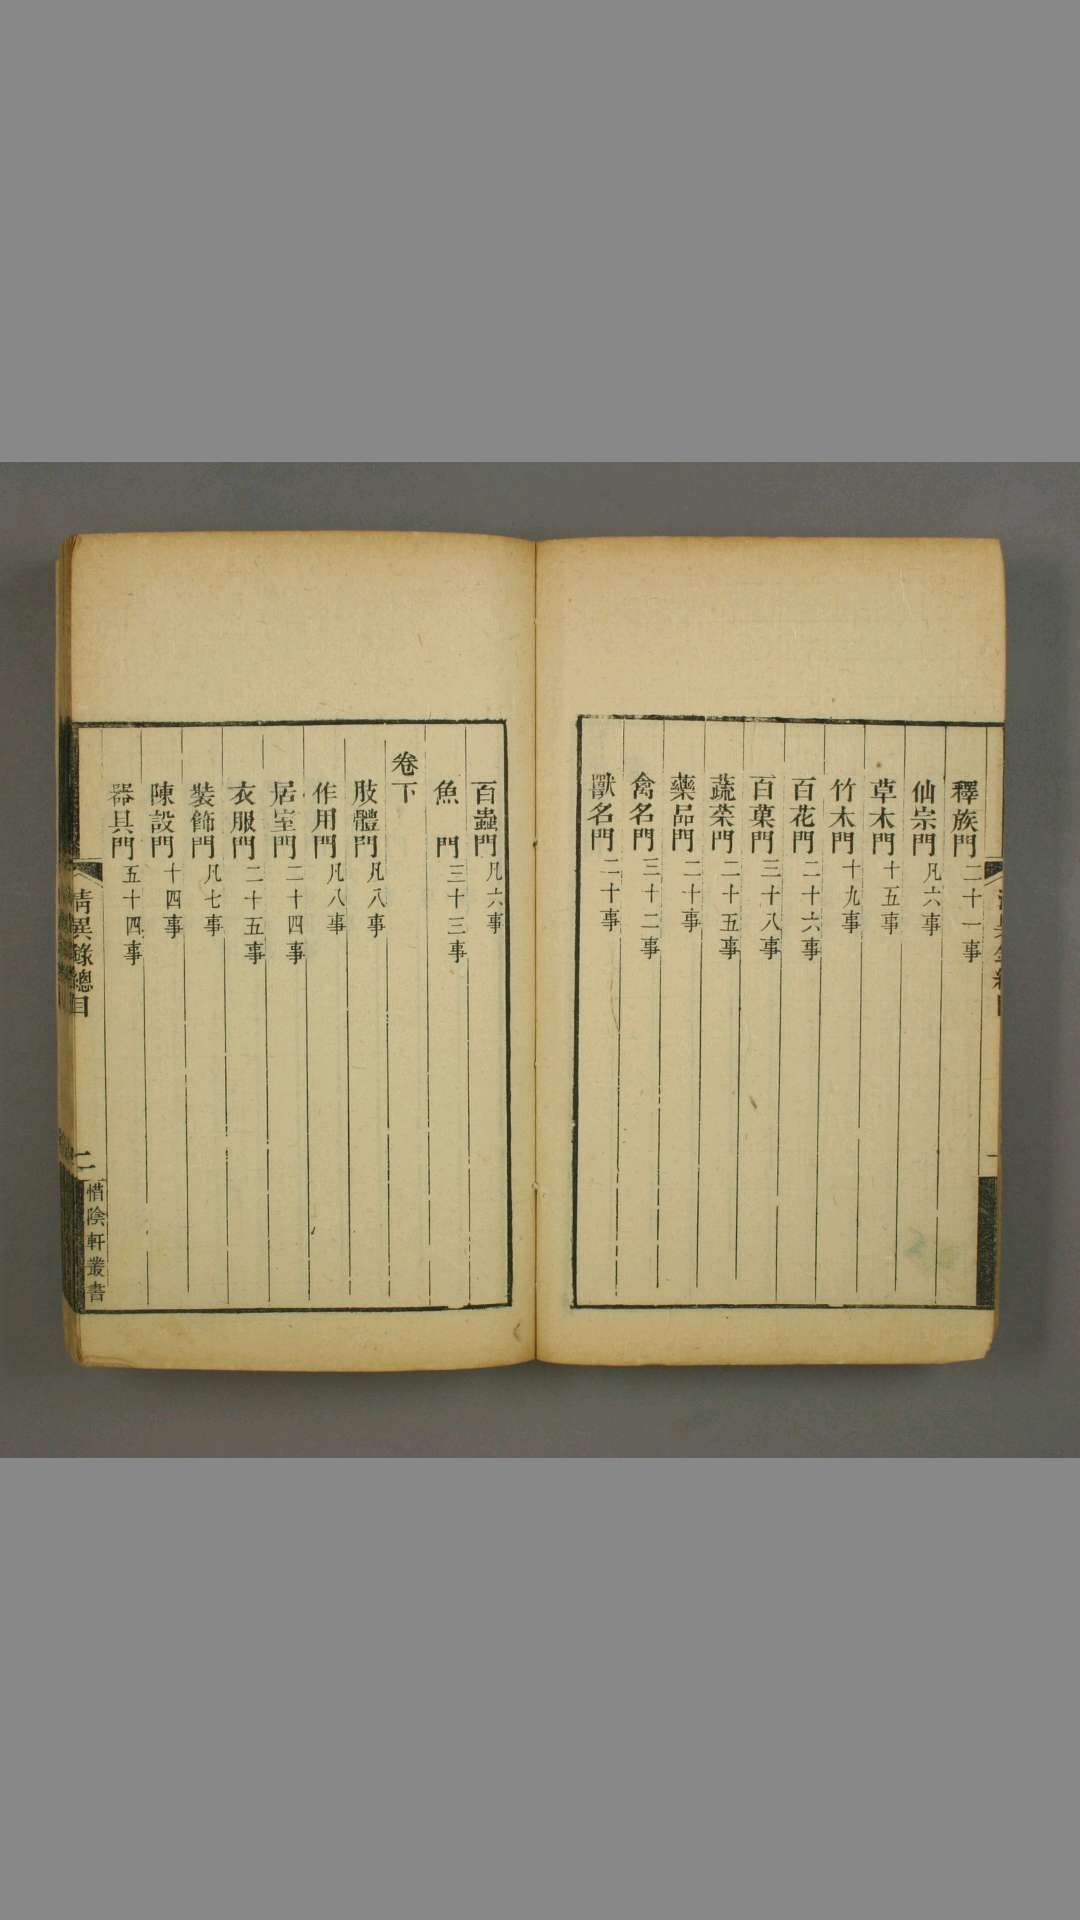 釋族門二十一事
仙宗門凡六事
草木門十五事
竹木門十九事
百花門二十六事
百菓門三十八事
蔬菜門二十五事
藥品門二十事
禽名門三十二事
獸名門二十事
百蟲門凡六事
魚門三十三事
卷下
肢體門凡八事
作用門凡八事
居室門二十四事
衣服門二十五事
裝飾門凡七事
陳設門十四事
器具門五十四事
清異錄總目
二
惜陰軒叢書